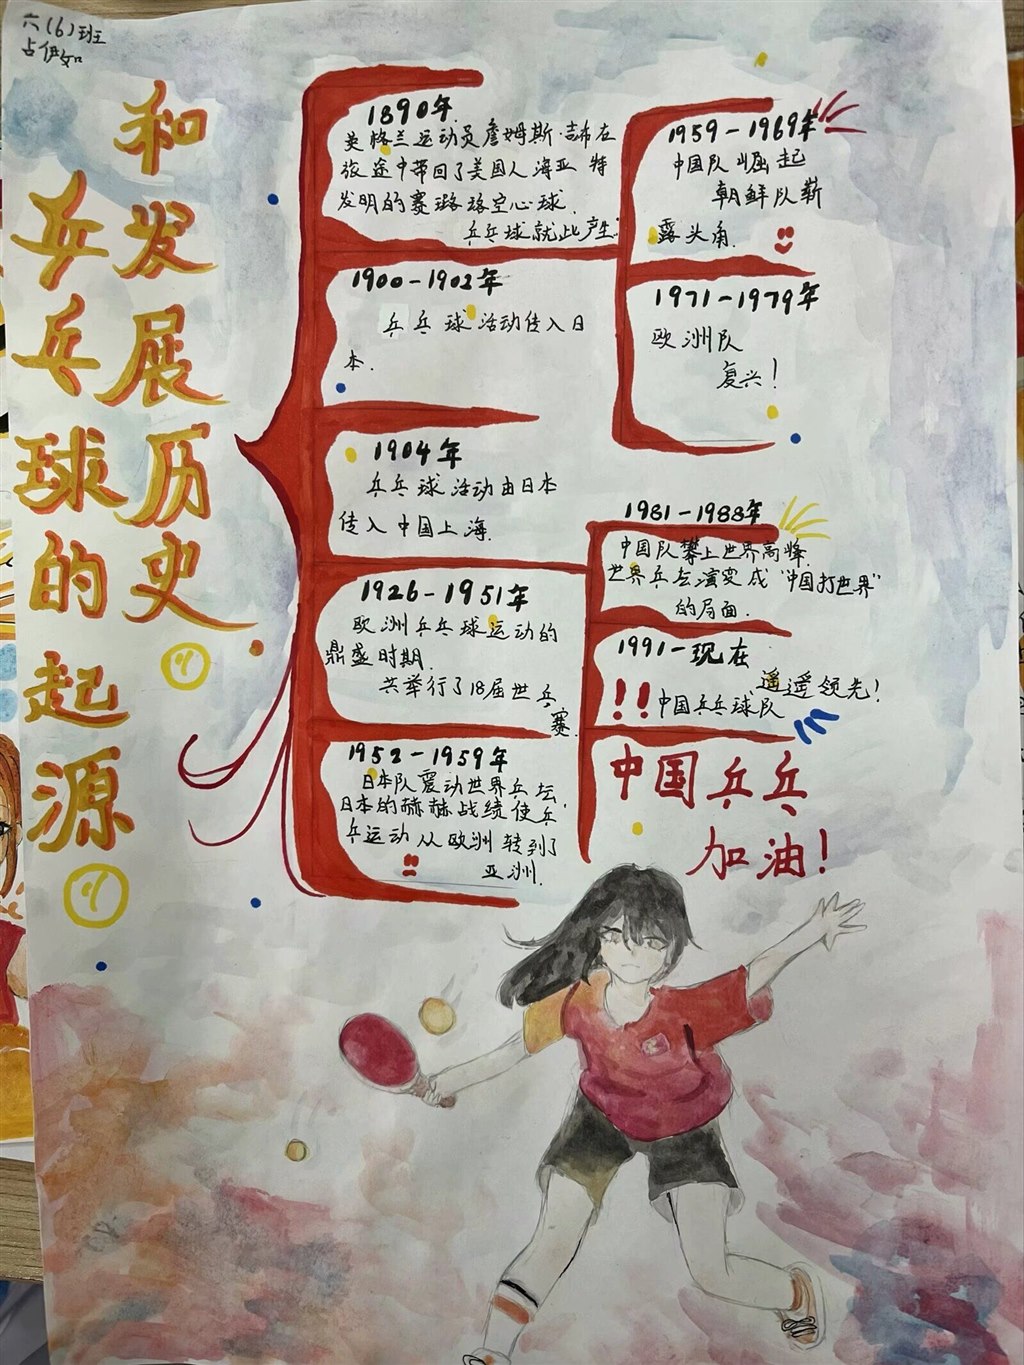 六(6)班
占伊如
乒乓球的起源
和发展历史
1890年
英格兰运动员詹姆斯·吉布在
旅途中带回了美国人海亚特
发明的赛璐珞空心球.
乒乓球就此产生.
1900-1902年
乒乓球活动传入日
本.
1904年
乒乓球活动由日本
传入中国上海.
1926-1951年
欧洲乒乓球运动的
鼎盛时期.
共举行了18届世乒
赛.
1952-1959年
日本队震动世界乒坛,
日本的赫赫战绩使乒
乓运动从欧洲转到了
亚洲.
1959-1969年
中国队崛起
朝鲜队崭
露头角.
1971-1979年
欧洲队
复兴!
1981-1988年
中国队攀上世界高峰.
世界乒坛演变成“中国打世界”
的局面.
1991-现在
遥遥领先!
!!中国乒乓球队
中国乒乓
加油!